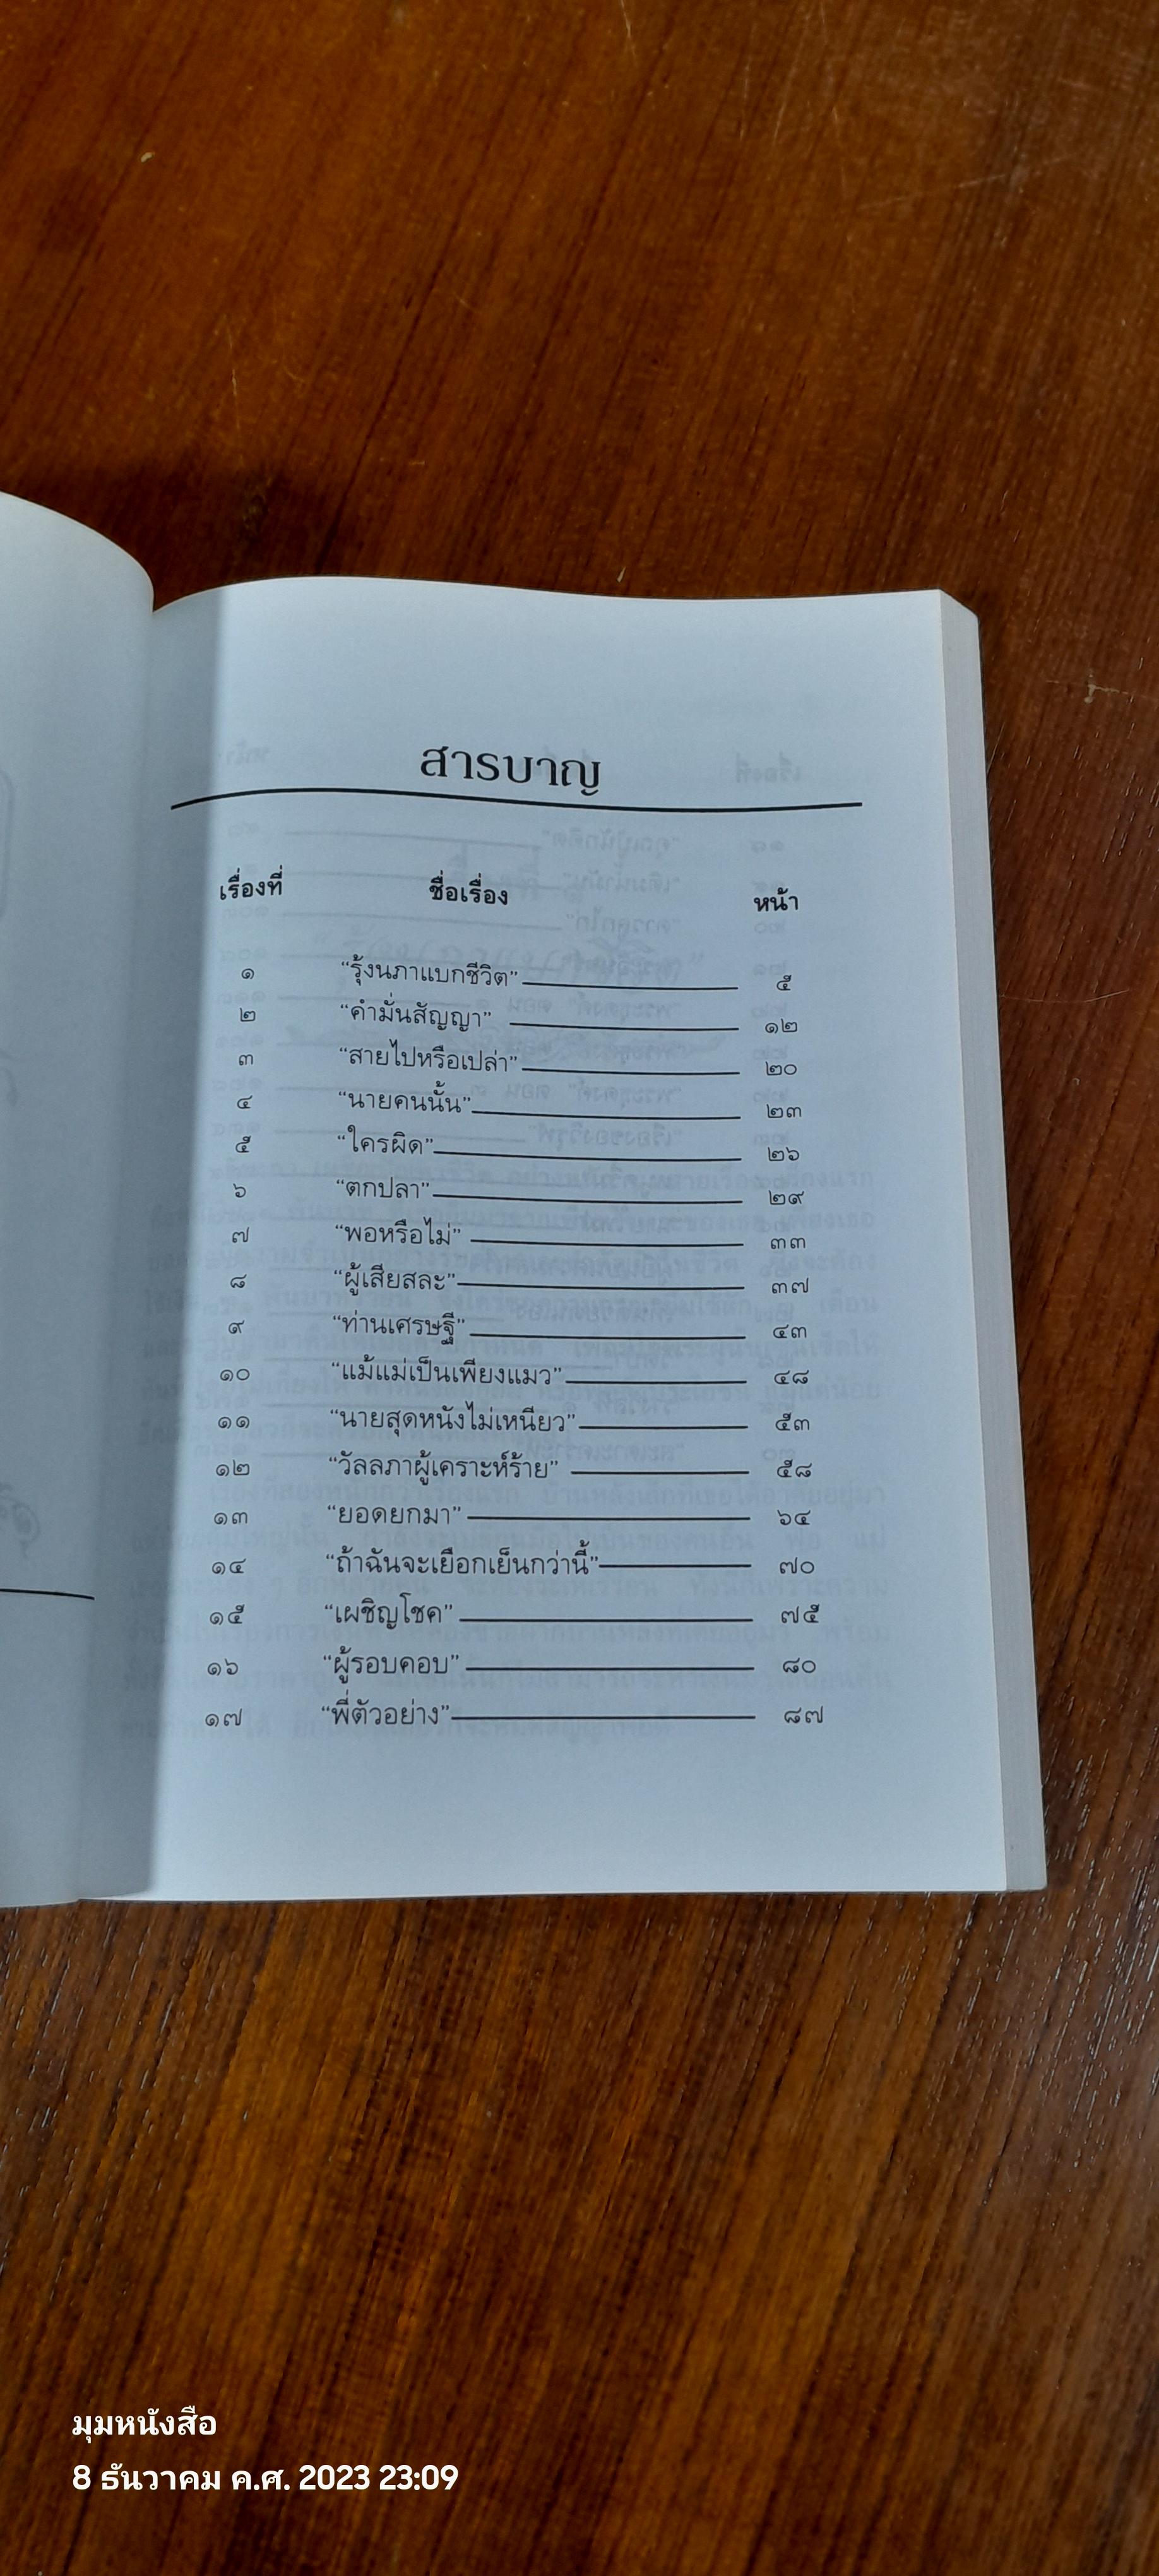 สารบาญ
เรื่องที่ ชื่อเรื่อง หน้า
๑ “รุ้งนภาแบกชีวิต” ๕
๒ “คำมั่นสัญญา” ๑๒
๓ “สายไปหรือเปล่า” ๒๐
๔ “นายคนนั้น” ๒๓
๕ “ใครผิด” ๒๖
๖ “ตกปลา” ๒๙
๗ “พอหรือไม่” ๓๓
๘ “ผู้เสียสละ” ๓๗
๙ “ท่านเศรษฐี” ๔๓
๑๐ “แม้แม่เป็นเพียงแมว” ๔๘
๑๑ “นายสุดหนังไม่เหนียว” ๕๓
๑๒ “วัลลภาผู้เคราะห์ร้าย” ๕๘
๑๓ “ยอดยกมา” ๖๔
๑๔ “ถ้าฉันจะเยือกเย็นกว่านี้” ๗๐
๑๕ “เผชิญโชค” ๗๕
๑๖ “ผู้รอบคอบ” ๘๐
๑๗ “พี่ตัวอย่าง” ๘๗
มุมหนังสือ
8 ธันวาคม ค.ศ. 2023 23:09